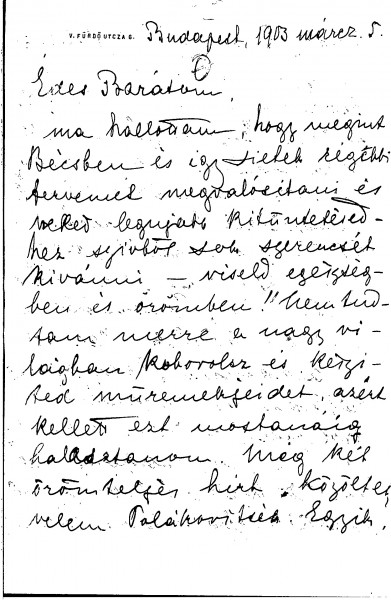 V. FÜRDŐ UTCZA 6.
Budapest, 1903 márcz. 5.
Édes Barátom,
ma hallottam, hogy megint
Bécsben és így sietek régebbi
tervemet megvalósítani és
neked legujabb kitüntetésed-
hez szivből sok szerencsét
kivánni – viseld egészség-
ben és örömben! Nem tud-
tam merre a nagy vi-
lágban koborolsz és készí-
ted műremekjeidet, azért
kellett ezt mostanáig
halasztanom. Még két
örömteljes hírt közöltek
velem Polákovitsék. Egyik,